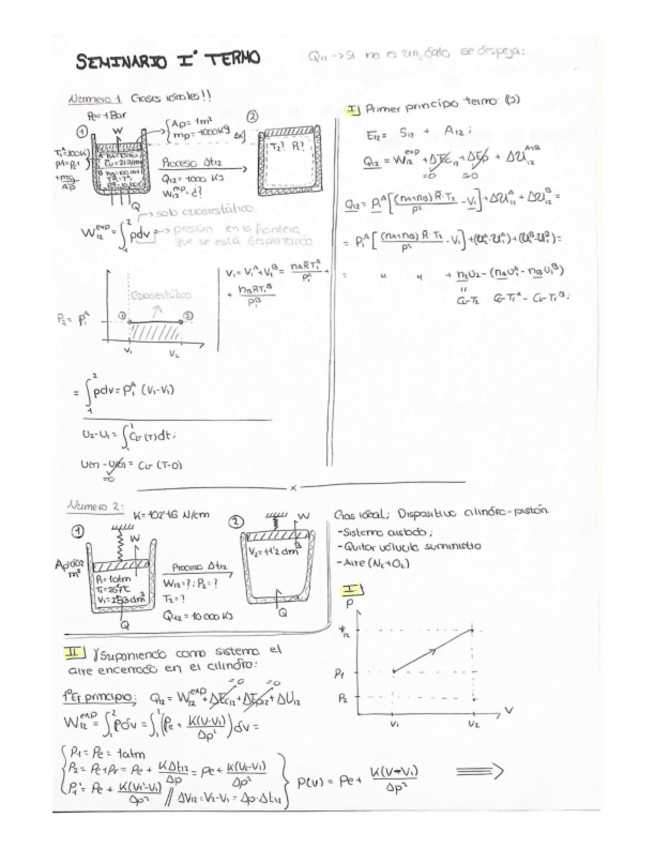 SEMINARIO I° TERMO
Q12 → Si no es un dato se despeja:
Número 1 Gases ideales!!
Pe = 1 Bar
① W
{Ap = 1m²
mp = 1000kg
②
T2? P2?
Proceso Δt12
Q12 = 1000 KJ
W12 = ¿?
Q
W12^exp = ∫₁² pdv
→ solo cuasiestático.
→ presión en la frontera
que se está desplazando
Cuasiestático
P2 = P1^A
① ②
V1 V2
V1 = V1^A + V1^B = nA R T1^A / P1^A +
+ nB R T1^B / P1^B
= ∫₁² pdv = P1^A (V2-V1)
U2 - U1 = ∫₁² Cv (T) dt;
U(T) - U(0) = Cv (T-0)
=0
I] Primer principio termo: (J)
E12 = S12 + A12;
Q12 = W12^exp + ΔEc12 + ΔEp12 + ΔU12^A+B
=0 =0
Q12 = P1^A [(nA+nB) R T2 / P2 - V1] + ΔU12^A + ΔU12^B =
= P1^A [(nA+nB) R T2 / P2 - V1] + (U2^A - U1^A) + (U2^B - U1^B) =
= " " " + n2U2 - (nA U1^A - nB U1^B)
Cv·T2 Cv·T1^A - Cv·T1^B;
x
Número 2: K = 102'16 N/cm
① W
P1 = 1atm
T1 = 26'7°C
V1 = 283 dm³
Q
Proceso Δt12
W12 = ?; P2 = ?
T2 = ?
Q12 = 10 000 KJ
② W
V2 = 11'2 dm³
Q
Gas ideal; Dispositivo cilindro-pistón.
- Sistema aislado;
- Quitar válvula suministro
- Aire (N2 + O2)
I]
P
P1
P2
V1 V2 V
II] Suponiendo como sistema el
aire encerrado en el cilindro:
1°Er principio: Q12 = W12^exp + ΔEc12 + ΔEp12 + ΔU12
=0 =0
W12^exp = ∫₁² pdv = ∫₁² (Pe + K(V-V1) / Ap²) dv =
{P1 = Pe = 1atm
P2 = Pe + Pr = Pe + KΔl12 / Ap = Pe + K(V2-V1) / Ap²
P1' = Pe + K(V1'-V1) / Ap² // ΔV12 = V2-V1 = Ap·Δl12}
P(V) = Pe + K(V-V1) / Ap² ⟹